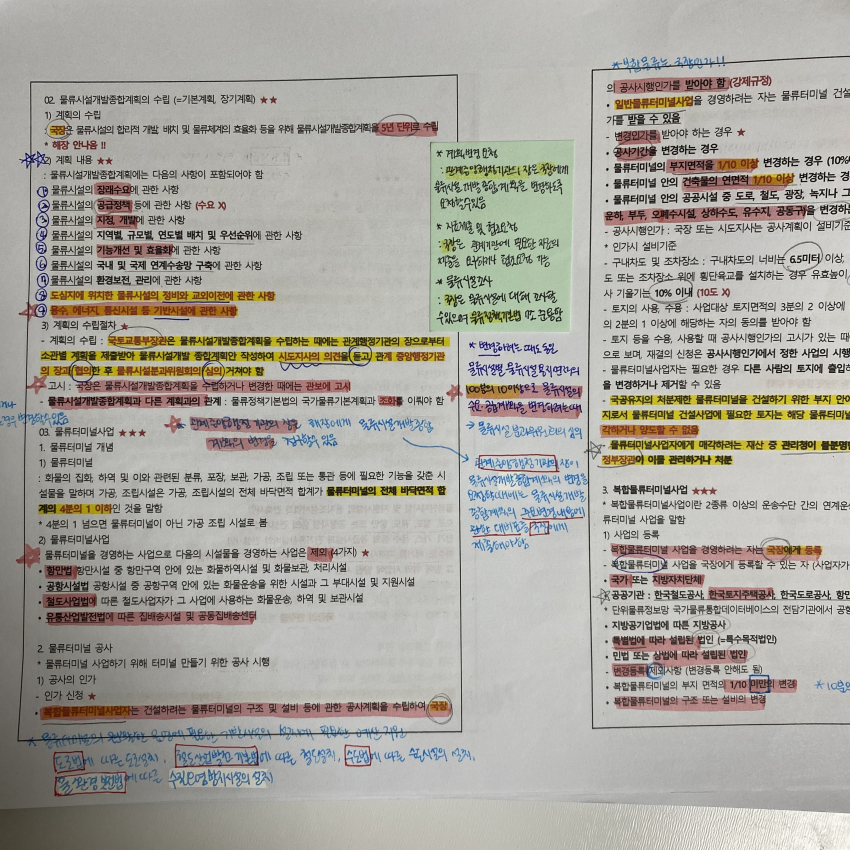 02. 물류시설개발종합계획의 수립 (=기본계획, 장기계획) ★★
1) 계획의 수립
: 국장은 물류시설의 합리적 개발, 배치 및 물류체계의 효율화 등을 위해 물류시설개발종합계획을 5년 단위로 수립
* 해장 안나옴 !!
2) 계획 내용 ★★
: 물류시설개발종합계획에는 다음의 사항이 포함되어야 함
① 물류시설의 장래수요에 관한 사항
② 물류시설의 공급정책 등에 관한 사항 (수요 X)
③ 물류시설의 지정, 개발에 관한 사항
④ 물류시설의 지역별, 규모별, 연도별 배치 및 우선순위에 관한 사항
⑤ 물류시설의 기능개선 및 효율화에 관한 사항
⑥ 물류시설의 국내 및 국제 연계수송망 구축에 관한 사항
⑦ 물류시설의 환경보전, 관리에 관한 사항
⑧ 도심지에 위치한 물류시설의 정비와 교외이전에 관한 사항
⑨ 용수, 에너지, 통신시설 등 기반시설에 관한 사항
3) 계획의 수립절차 ★
- 계획의 수립 : 국토교통부장관은 물류시설개발종합계획을 수립하는 때에는 관계행정기관의 장으로부터
소관별 계획을 제출받아 물류시설개발 종합계획안 작성하여 시도지사의 의견을 듣고, 관계 중앙행정기관
의 장과 협의한 후 물류시설분과위원회의 심의 거쳐야 함
- 고시 : 국장은 물류시설개발종합계획을 수립하거나 변경한 때에는 관보에 고시
- 물류시설개발종합계획과 다른 계획과의 관계 : 물류정책기본법의 국가물류기본계획과 조화를 이뤄야 함
관계중앙행정기관의 장은 해장에게 물류시설개발종합
계획의 변경을 요청할 수 있음
03. 물류터미널사업 ★★★
1. 물류터미널 개념
1) 물류터미널
: 화물의 집화, 하역 및 이와 관련된 분류, 포장, 보관, 가공, 조립 또는 통관 등에 필요한 기능을 갖춘 시
설물을 말하며 가공, 조립시설은 가공, 조립시설의 전체 바닥면적 합계가 물류터미널의 전체 바닥면적 합
계의 4분의 1 이하인 것을 말함
* 4분의 1 넘으면 물류터미널이 아닌 가공 조립 시설로 봄
2) 물류터미널사업
물류터미널을 경영하는 사업으로 다음의 시설물을 경영하는 사업은 제외 (4가지) ★
• 항만법 항만시설 중 항만구역 안에 있는 화물하역시설 및 화물보관, 처리시설
• 공항시설법 공항시설 중 공항구역 안에 있는 화물운송을 위한 시설과 그 부대시설 및 지원시설
• 철도사업법에 따른 철도사업자가 그 사업에 사용하는 화물운송, 하역 및 보관시설
• 유통산업발전법에 따른 집배송시설 및 공동집배송센터
2. 물류터미널 공사
* 물류터미널 사업하기 위해 터미널 만들기 위한 공사 시행
1) 공사의 인가
- 인가 신청 ★
• 복합물류터미널사업자는 건설하려는 물류터미널의 구조 및 설비 등에 관한 공사계획을 수립하여 국장
도로법에 따른 도로설치, 철도산업발전기본법에 따른 철도설치, 수도법에 따른 수도시설의 설치,
물환경보전법에 따른 수질오염방지시설의 설치
* 계획변경 요청
: 관계중앙행정기관의 장은 국장에게
물류시설개발종합계획을 변경하도록
요청할 수 있음
* 자료제출 및 협조요청
: 국장은 관계기관에 필요한 자료의
제출을 요구하거나 협조요청 가능
* 물류시설조사
: 국장은 물류시설에 대해 조사할
수 있으며 물류정책기본법 준용함
* 변경하려는 때도 동일
100분의 10 이상으로 물류시설의
수요·공급계획을 변경하려는 때
→ 물류시설분과위원회의 심의
→ 관계중앙행정기관의 장이
물류시설개발종합계획의 변경을
요청할 때에는 물류시설개발
종합계획의 주요변경내용에
관한 대비표를 국장에게
제출해야 함
의 공사시행인가를 받아야 함 (강제규정)
• 일반물류터미널사업을 경영하려는 자는 물류터미널 건설
가를 받을 수 있음
- 변경인가를 받아야 하는 경우 ★
• 공사기간을 변경하는 경우
• 물류터미널의 부지면적을 1/10 이상 변경하는 경우 (10%
• 물류터미널 안의 건축물의 연면적 1/10 이상 변경하는 경
• 물류터미널 안의 공공시설 중 도로, 철도, 광장, 녹지나 그
운하, 부두, 오폐수시설, 상하수도, 유수지, 공동구)을 변경하는
- 공사시행인가 : 국장 또는 시도지사는 공사계획이 설비기준
* 인가시 설비기준
- 구내차도 및 조차장소 : 구내차도의 너비는 6.5미터 이상,
도 또는 조차장소 위에 횡단육교를 설치하는 경우 유효높이
사 기울기는 10% 이내 (10도 X)
- 토지의 사용, 수용 : 사업대상 토지면적의 3분의 2 이상에
의 2분의 1 이상에 해당하는 자의 동의를 받아야 함
- 토지 등을 수용, 사용할 때 공사시행인가의 고시가 있는 때
으로 보며, 재결의 신청은 공사시행인가에서 정한 사업의 시행
- 물류터미널사업자는 필요한 경우 다른 사람의 토지에 출입하
을 변경하거나 제거할 수 있음
- 국공유지의 처분제한 물류터미널을 건설하기 위한 부지 안에
지로서 물류터미널 건설사업에 필요한 토지는 해당 물류터미널
각하거나 양도할 수 없음
- 물류터미널사업자에게 매각하려는 재산 중 관리청이 불분명한
정부장관이 이를 관리하거나 처분
3. 복합물류터미널사업 ★★★
* 복합물류터미널사업이란 2종류 이상의 운송수단 간의 연계운송
류터미널 사업을 말함
1) 사업의 등록
- 복합물류터미널 사업을 경영하려는 자는 국장에게 등록
- 복합물류터미널 사업을 국장에게 등록할 수 있는 자 (사업자가
• 국가 또는 지방자치단체
• 공공기관 : 한국철도공사, 한국토지주택공사, 한국도로공사, 항만
* 단위물류정보망 국가물류통합데이터베이스의 전담기관에서 공항
• 지방공기업법에 따른 지방공사
• 특별법에 따라 설립된 법인 (=특수목적법인)
• 민법 또는 상법에 따라 설립된 법인
- 변경등록 제외사항 (변경등록 안해도 됨)
• 복합물류터미널의 부지 면적의 1/10 미만의 변경
• 복합물류터미널의 구조 또는 설비의 변경